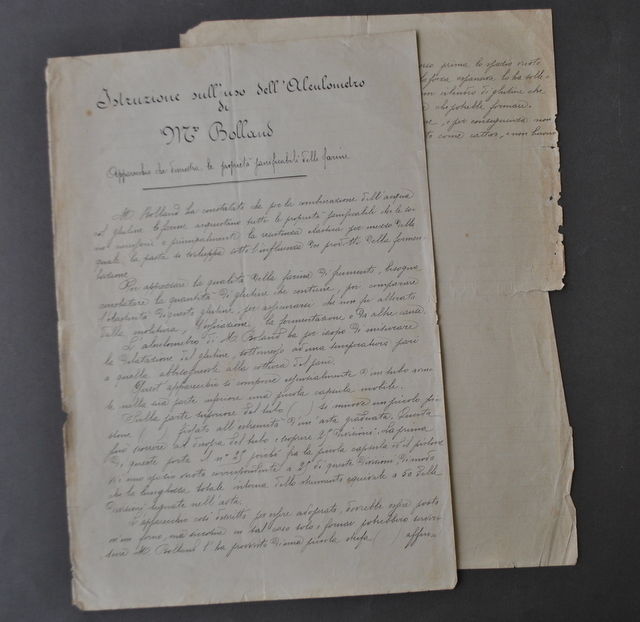 Istruzione sull'uso dell'Aleulometro
di
Mr Bolland
Apparecchio che dimostra le proprietà panificabili delle farine
M. Bolland ha constatato che per la combinazione dell'acqua
col glutine le farine acquistano tutte le proprietà panificabili che le so-
no necessarie e principalmente la resistenza elastica per mezzo della
quale, la pasta si sviluppa sotto l'influenza dei prodotti della fermen-
tazione.
Per apprezzare la qualità della farina di frumento, bisogna
constatare la quantità di glutine che contiene, poi comparare
l'elasticità di questo glutine, per assicurarsi che non fu alterato
dalla molitura, l'essicazione, la fermentazione o da altre cause.
L'aleulometro di M. Bolland ha per iscopo di misurare
la dilatazione del glutine, sottomesso ad una temperatura pari
a quella abbisognante alla cottura del pane.
Quest'apparecchio si compone essenzialmente d'un tubo
nella sua parte inferiore una piccola capsula mobile.
Sulla parte superiore del tubo ( ) si muove un piccolo pi-
stone ( ) fissato all'estremità d'un'asta graduata. Questa
può scorrere al di sopra del tubo e scoprire 25 divisioni. La prima
di queste porta il n° 25 perchè fra la piccola capsula ed il pistone
vi è uno spazio vuoto corrispondente a 25 di queste divisioni, di modo
che la lunghezza totale interna dello strumento equivale a 50 delle
divisioni segnate nell'asta.
L'apparecchio così descritto per essere adoperato, dovrebbe essere posto
in un forno, ma siccome in tal caso solo i fornai potrebbero servir-
sene M. Bolland l'ha provvisto di una piccola stufa ( ) affin-
prima lo spazio vuoto
la forza espansiva lo ha solle-
di glutine che
che potrebbe formare.
e per conseguenza non
come cattiva, e non buona